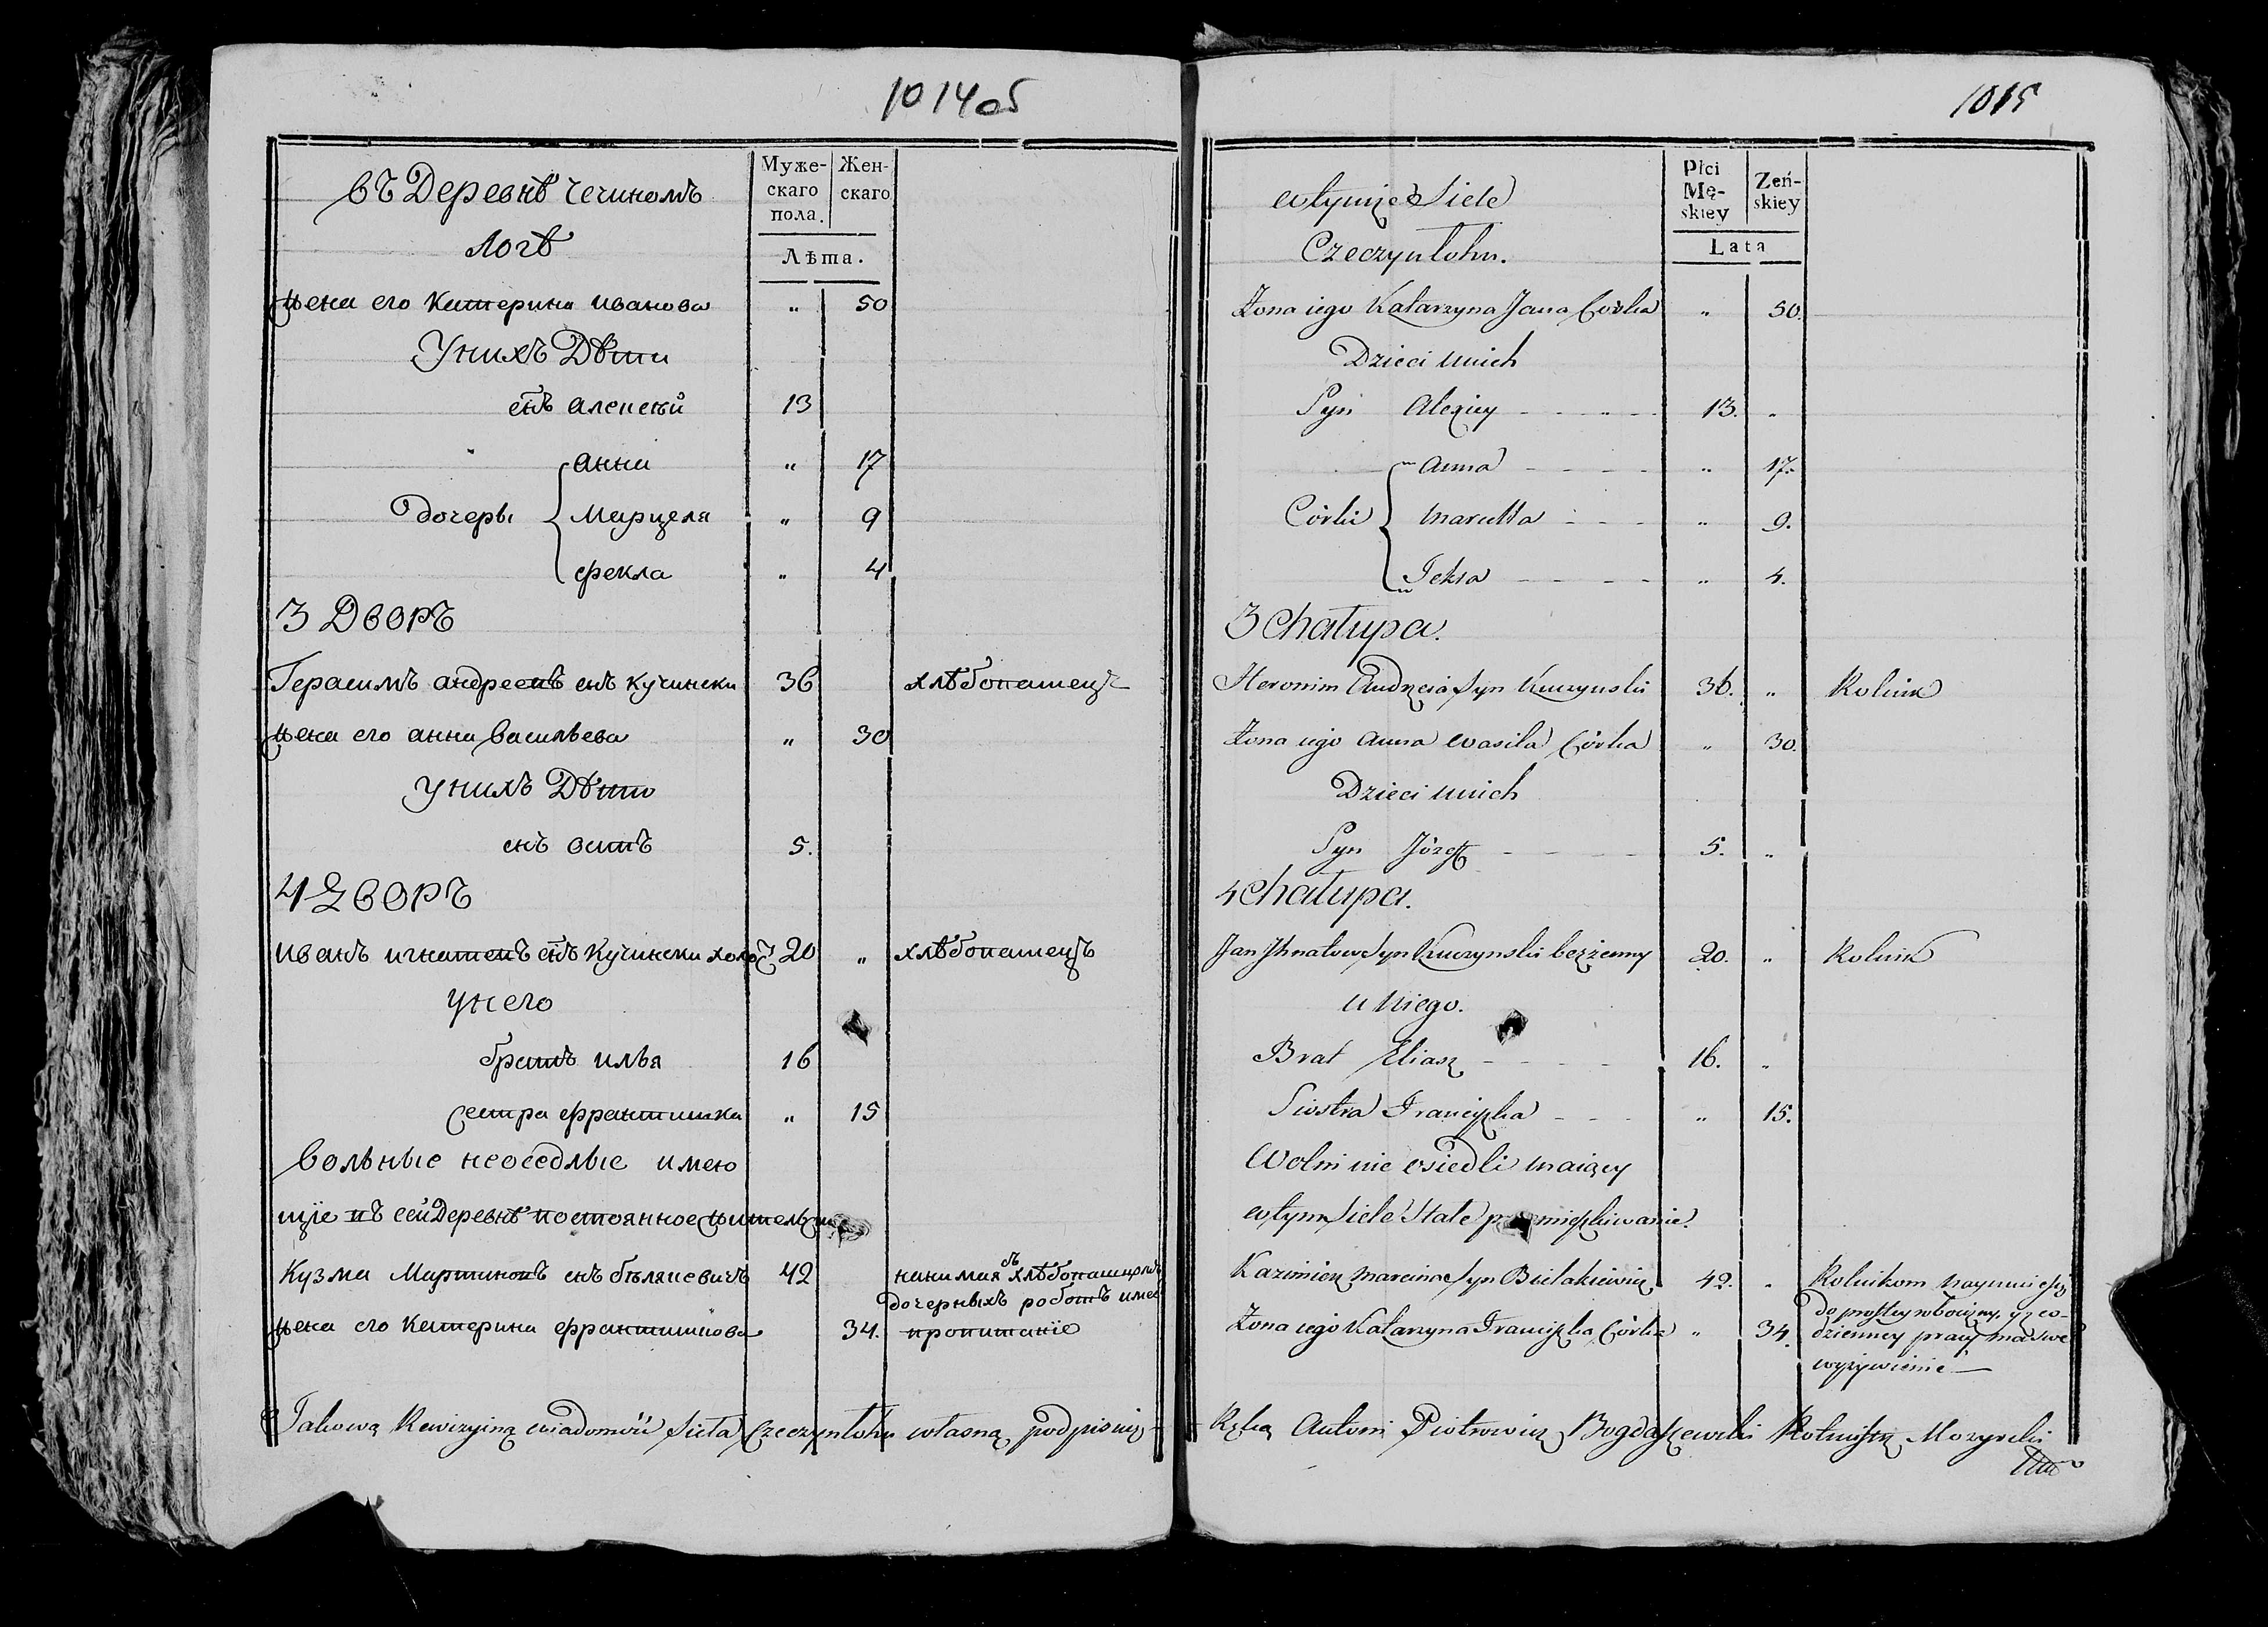 1014об
въ Деревнѣ Чечиномъ
Логѣ
Муже-
скаго
пола.
Жен-
скаго
Лѣта.
жена его Катерина иванова " 50
У нихъ Дѣти
снъ алексѣй 13
анна " 17
дочеры Марцеля " 9
фекла " 4
3 Дворъ
Герасимъ андреевъ снъ кучински 36 хлѣбопашецъ
жена его анна васильева " 30
У нихъ Дѣти
снъ осипъ 5.
4 Дворъ
иванъ игнатевъ снъ кучински холо 20 " хлѣбопашецъ
У него
братъ илья 16
сестра франтишка " 15
вольные неоседлые имею
щіе въ сей Деревнѣ постоянное жительст
Кузма Мартиновъ снъ бѣляцевичъ 42 нанимая съ хлѣбопащцомъ
дочерныхъ роботъ имее
жена его Катерина франтишкова 34. пропитаніе
Takową Rewizyiną wiadomość Sieła Czeczynłohu własną podpisuię
1015
w tymże Siele
Czeczynłohu.
Płci
Mę-
skiey
Żeń-
skiey
Lata
Żona iego Katarzyna Jana Córka " 50.
Dzieci u nich
Syn Alexiey 13. "
Anna " 17.
Córki Marcella " 9.
Tekla " 4.
3 Chałupa.
Heronim Andrzeia Syn Kuczynski 36. " Rolnik
Żona iego Anna Wasila Córka " 30.
Dzieci u nich
Syn Józef 5. "
4 Chałupa.
Jan Ihnatow Syn Kuczynski bezżenny 20. " Rolnik
u niego.
Brat Eliasz 16. "
Siostra Franciszka " 15.
Wolni nie osiedli maiący
w tym Siele Stałe przemięszkiwanie.
Kazimierz Marcina Syn Bielakiewicz 42. " Rolnikom naymuie się
do prostey robocizny, y z co-
Żona iego Katarzyna Franciszka Córka " 34. dzienney pracy ma swe
wyżywienie
Ręką Antoni Piotrowicz Bogdaszewski Rotmistrz Mozyrski